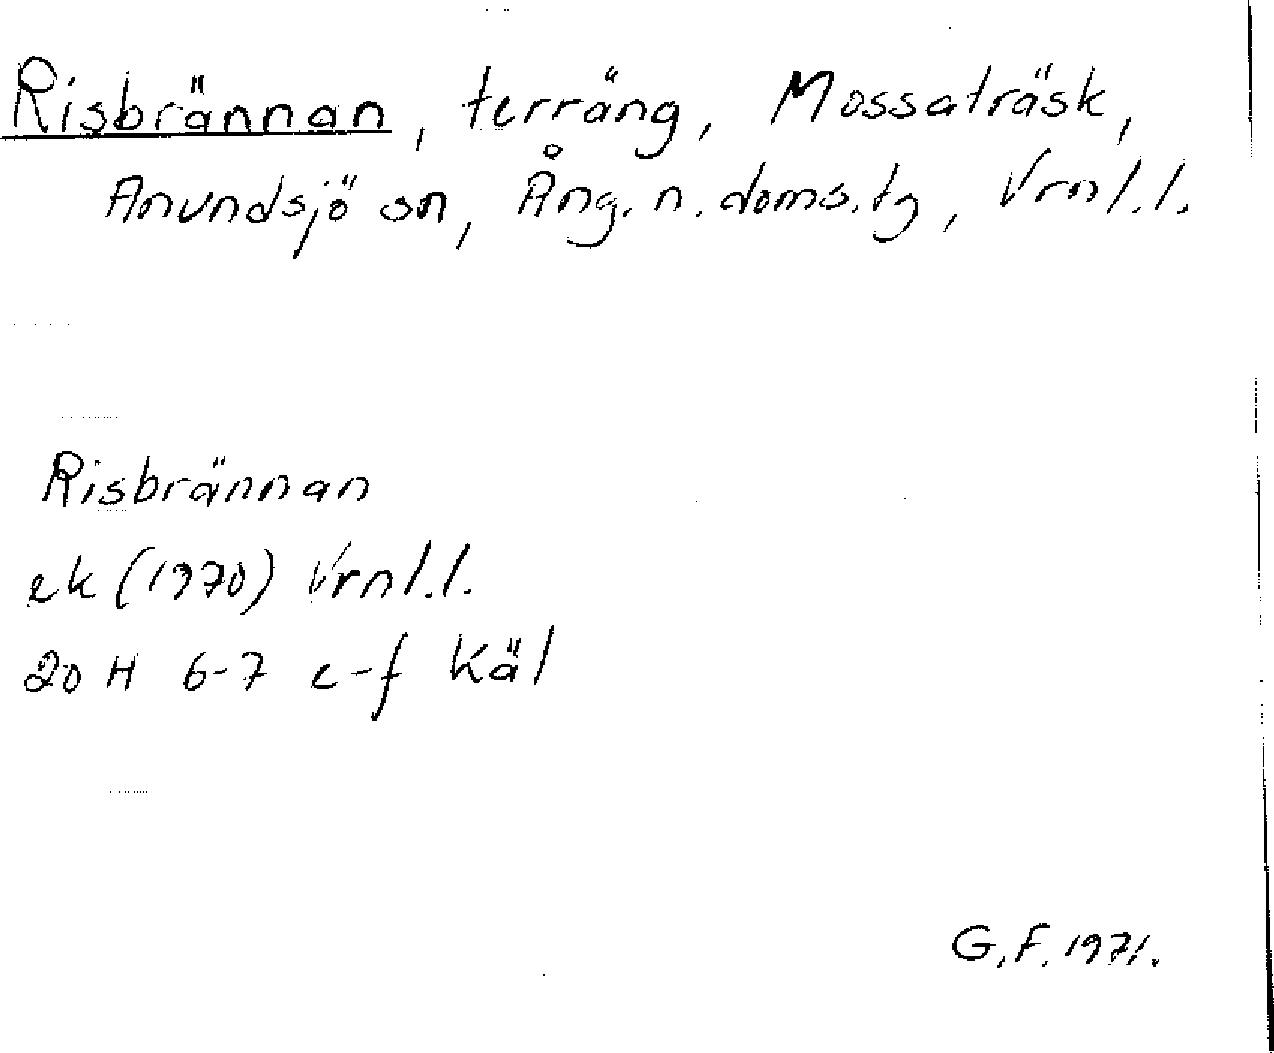 Risbrännan, terräng, Mossaträsk,
Anundsjö sn, Ång. n. doms. tg, Vrnl. l.
Risbrännan
ek (1970) Vrnl. l.
20 H 6-7 e-f Käl
G.F. 1971.